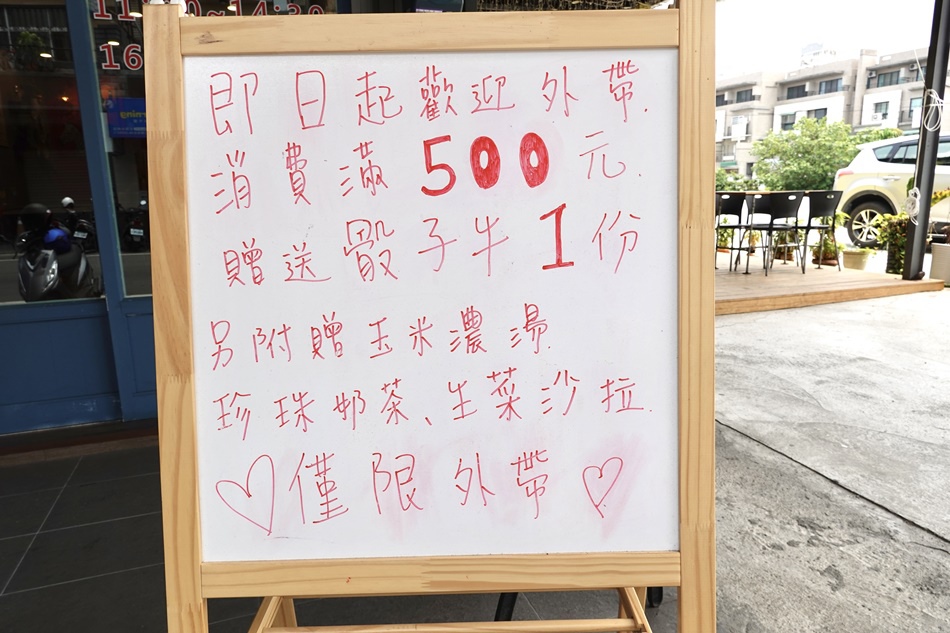 11:00~14:30
16
即日起歡迎外帶.
消費滿500元.
贈送骰子牛1份
另附贈玉米濃湯
珍珠奶茶、生菜沙拉.
♡僅限外帶♡